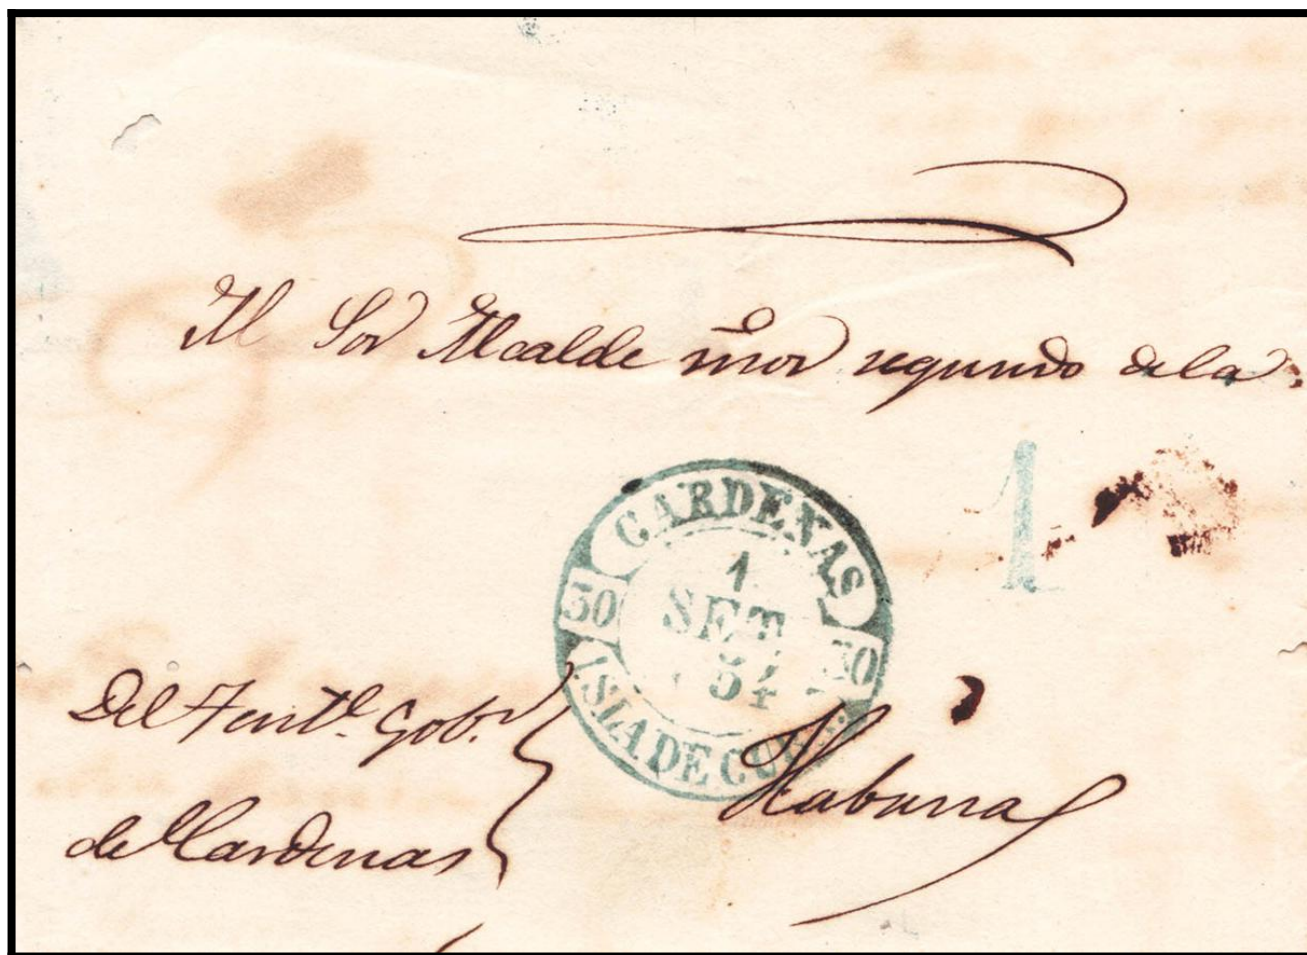 Al Sor Alcalde mor segundo de la
1
CARDENAS
30 1 30
SET
54
ISLA DE CUBA
Del Tente. Gobr.
de Cardenas
Habana